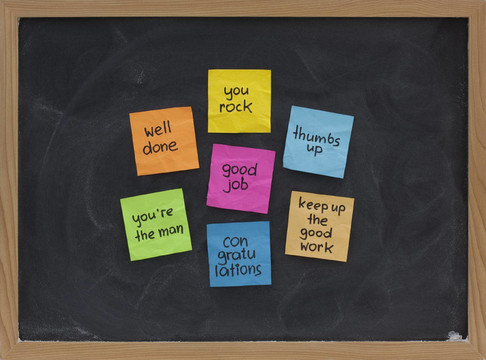 you
rock
well
done
thumbs
up
good
job
you're
the man
keep up
the
good
work
con
gratu
lations